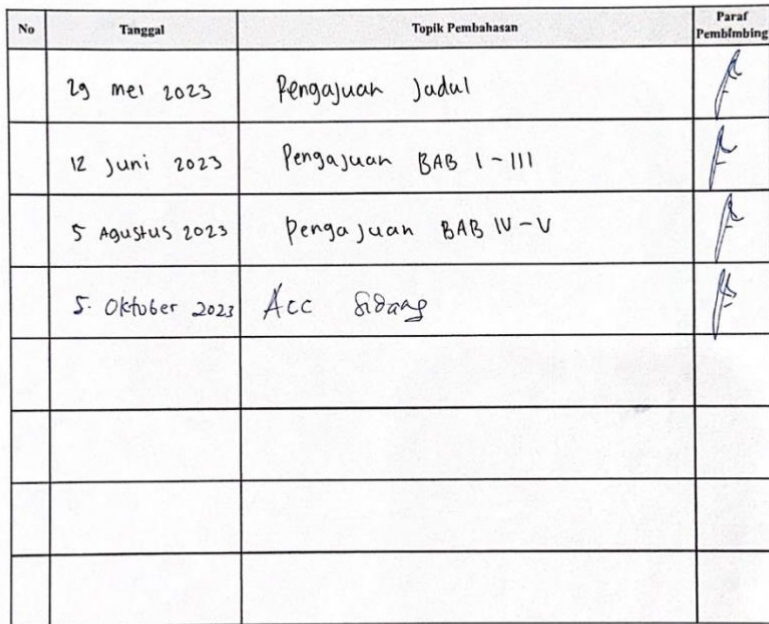 No Tanggal Topik Pembahasan Paraf Pembimbing
29 mei 2023 Pengajuan Judul
12 Juni 2023 Pengajuan BAB I - III
5 Agustus 2023 Pengajuan BAB IV - V
5. Oktober 2023 Acc Sidang